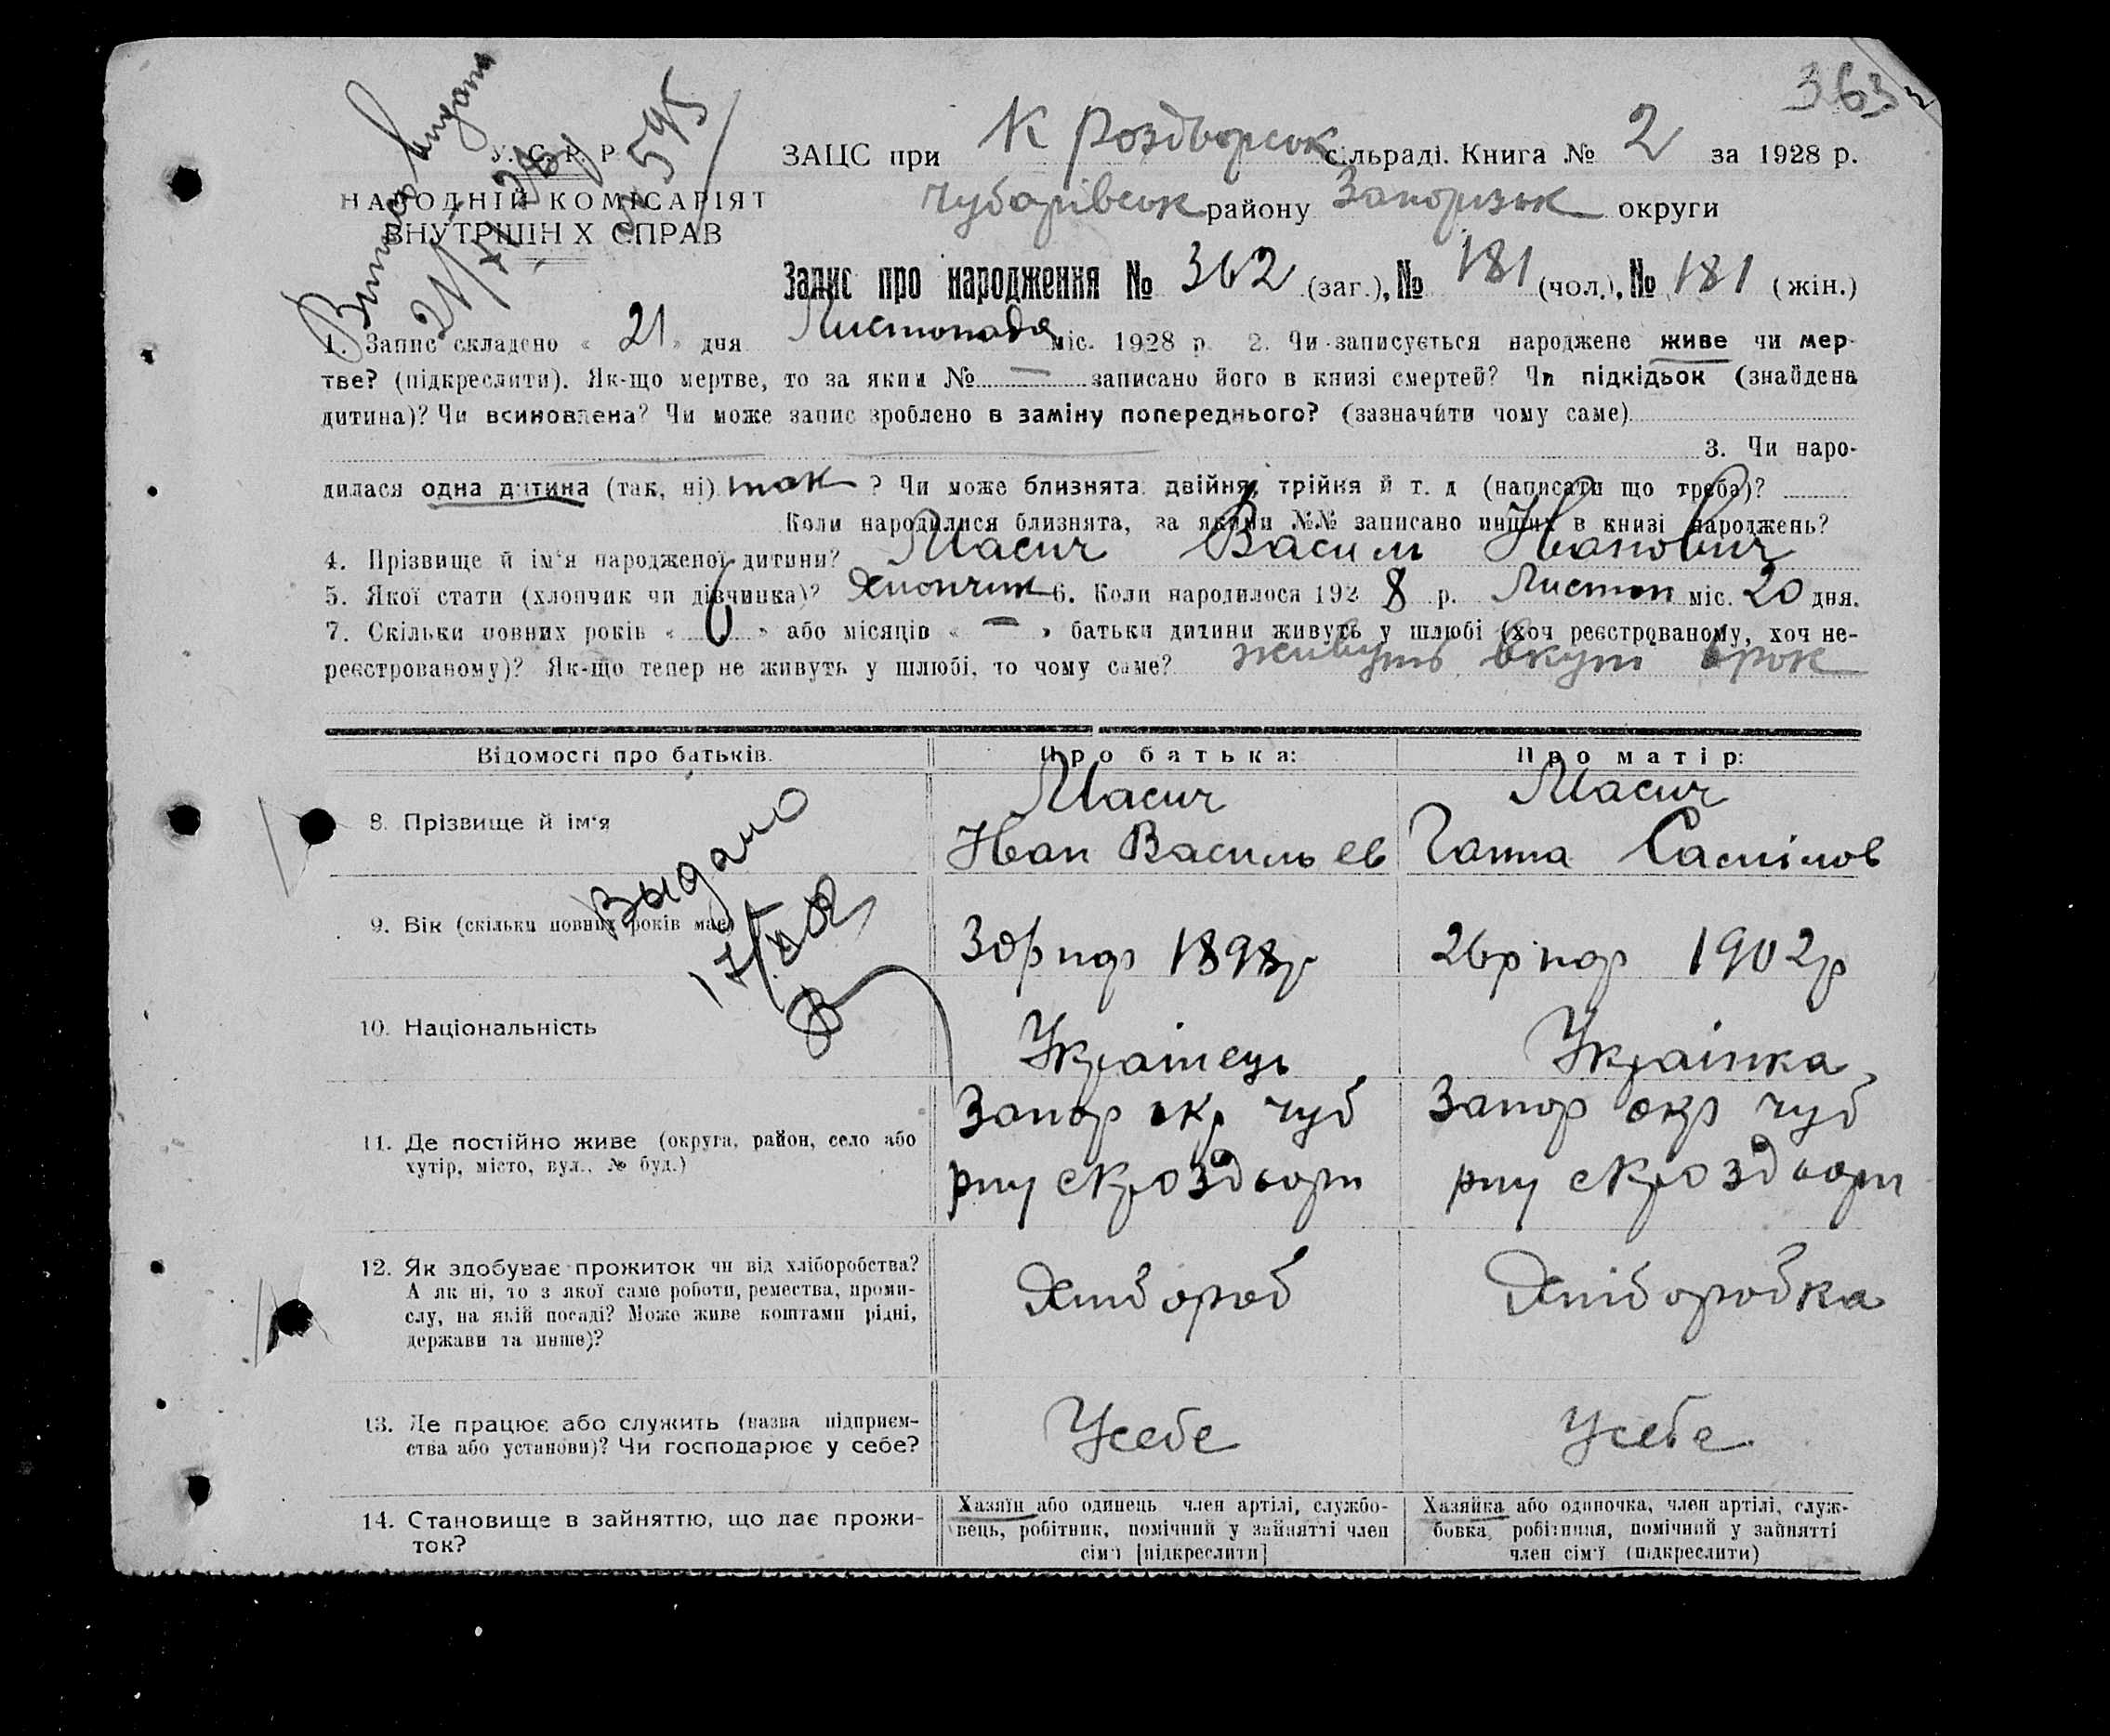 363
У. С. Р. Р.
НАРОДНІЙ КОМІСАРІЯТ
ВНУТРІШНІХ СПРАВ
Витяг видано
21/XI 28
№ 595
ЗАЦС при К Роздорськ сільраді. Книга № 2 за 1928 р.
Чубарівськ району Запоризьк округи
Запис про народження № 362 (заг.), № 181 (чол.), № 181 (жін.)
1. Запис складено « 21 » дня Листопада міс. 1928 р. 2. Чи записується народжене живе чи мер-
тве? (підкреслити). Як-що мертве, то за яким № — записано його в книзі смертей? Чи підкідьок (знайдена
дитина)? Чи всиновлена? Чи може запис зроблено в заміну попереднього? (зазначити чому саме)
3. Чи наро-
дилася одна дитина (так, ні) так ? Чи може близнята: двійня, трійня й т. д. (написати що треба)?
Коли народилися близнята, за якими №№ записано инших в книзі народжень?
4. Прізвище й ім'я народженої дитини? Масич Василь Іванович
5. Якої стати (хлопчик чи дівчинка)? Хлопчик 6. Коли народилося 1928 р. Листоп міс. 20 дня.
7. Скільки повних років « 6 » або місяців « — » батьки дитини живуть у шлюбі (хоч реєстрованому, хоч не-
реєстрованому)? Як-що тепер не живуть у шлюбі, то чому саме? живуть вкупі
Відомості про батьків. Про батька: Про матір:
8. Прізвище й ім'я Масич Іван Васильев Масич Ганна
Выдано
9. Вік (скільки повних років має) 30р нар 1898р 26р нар 1902р
10. Національність Українець Українка
11. Де постійно живе (округа, район, село або
хутір, місто, вул., № буд.)
Запор окр чуб Запор окр чуб
рну с Кроздорп рну с Кроздорп
12. Як здобуває прожиток чи від хліборобства?
А як ні, то з якої саме роботи, ремества, проми-
слу, на якій посаді? Може живе коштами рідні,
держави та инше)?
Хлібороб Хліборобка
13. Де працює або служить (назва підприєм-
ства або установи)? Чи господарює у себе?
Усебе Усебе
14. Становище в зайняттю, що дає прожи-
ток?
Хазяїн або одинець, член артілі, службо-
вець, робітник, помічний у зайнятті член
сім'ї [підкреслити]
Хазяйка або одиночка, член артілі, служ-
бовка, робітниця, помічний у зайнятті
член сім'ї (підкреслити)